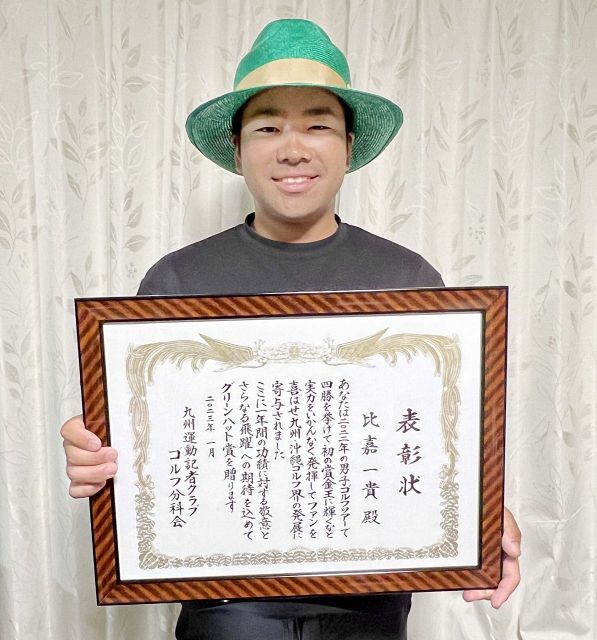 表彰状
比嘉一貴 殿
あなたは二〇二二年の男子ゴルフツアーで
四勝を挙げて初の賞金王に輝くなど
実力をいかんなく発揮してファンを
喜ばせ九州・沖縄ゴルフ界の発展に
寄与されました
ここに一年間の功績に対する敬意と
さらなる飛躍への期待を込めて
グリーンハット賞を贈ります
二〇二三年 一月
九州運動記者クラブ
ゴルフ分科会